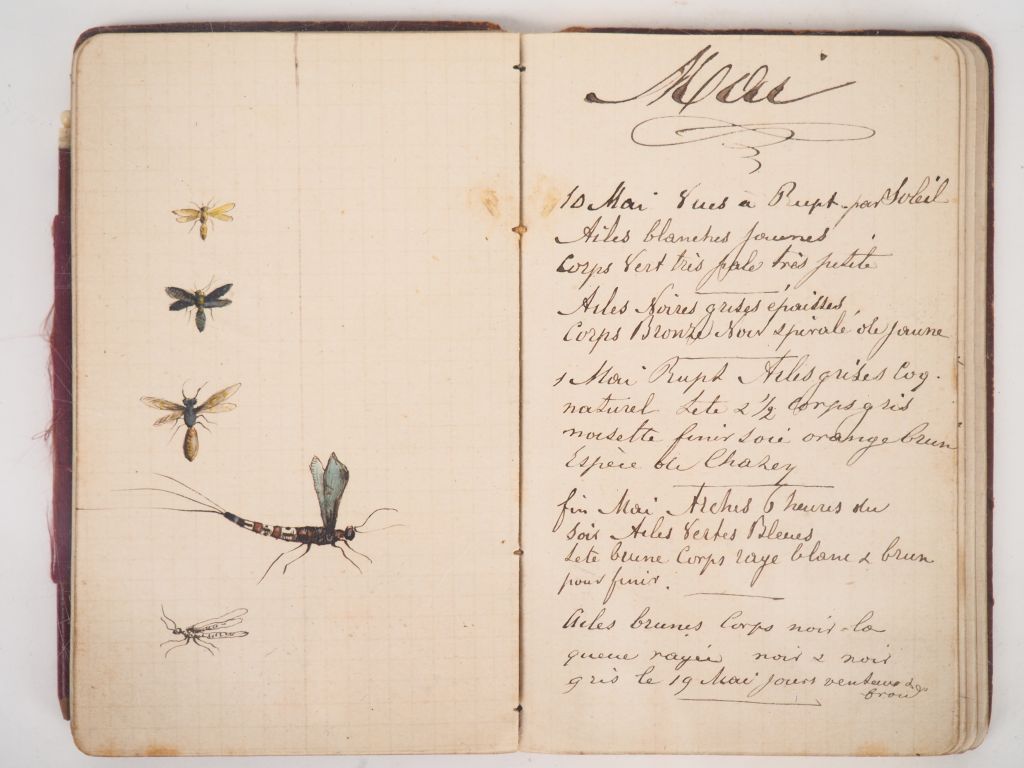 Mai
10 Mai Vues à Rupt par Soleil
Ailes blanches jaunes
Corps Vert très pale très petite
Ailes Noires grises épaisses,
Corps Bronze Noir spirale de jaune
1 Mai Rupt Ailes grises Coq.
naturel tete 2 1/2 corps gris
noisette finir soie orange brun
Espèce de Chazey
fin Mai Arches 6 heures du
soir Ailes Vertes Bleues
tete brune Corps raye blanc & brun
pour finir.
Ailes brunes Corps noir - la
queue rayée noir & noir
gris le 19 Mai jours venteux